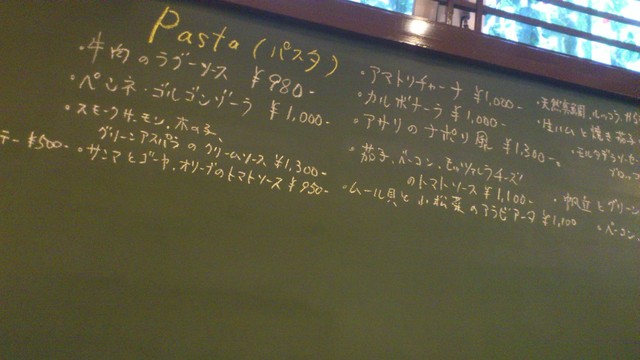 Pasta (パスタ)
・牛肉のラグーソース ¥980-
・ペンネ・ゴルゴンゾーラ ¥1,000-
・スモークサーモン、木の子、
グリーンアスパラのクリームソース ¥1,300-
¥500-
・サンマとゴーヤ、オリーブのトマトソース ¥950-
・アマトリチャーナ ¥1,000-
・カルボナーラ ¥1,000-
・アサリのナポリ風 ¥1,300-
・茄子、ベーコン、モッツァレラチーズ
のトマトソース ¥1,100-
・ムール貝と小松菜のアラビアータ ¥1,100
・生ハムと焼き茄子
・帆立とグリーン
・ベーコン